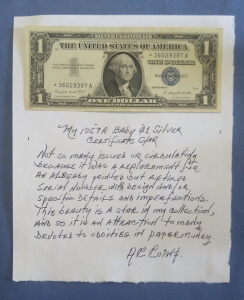 SILVER CERTIFICATE
THE UNITED STATES OF AMERICA
* 36029387 A
* 36029387 A
ONE DOLLAR
My 1957A Baby $1 Silver
Certificate Star
Not so many issued or circulating
because it was a replacement for
an already printed but retired
serial number with design and/or
specific details and imperfections.
This beauty is a star in my collection,
and so it is an attraction to many
devoted to oddities in paper money.